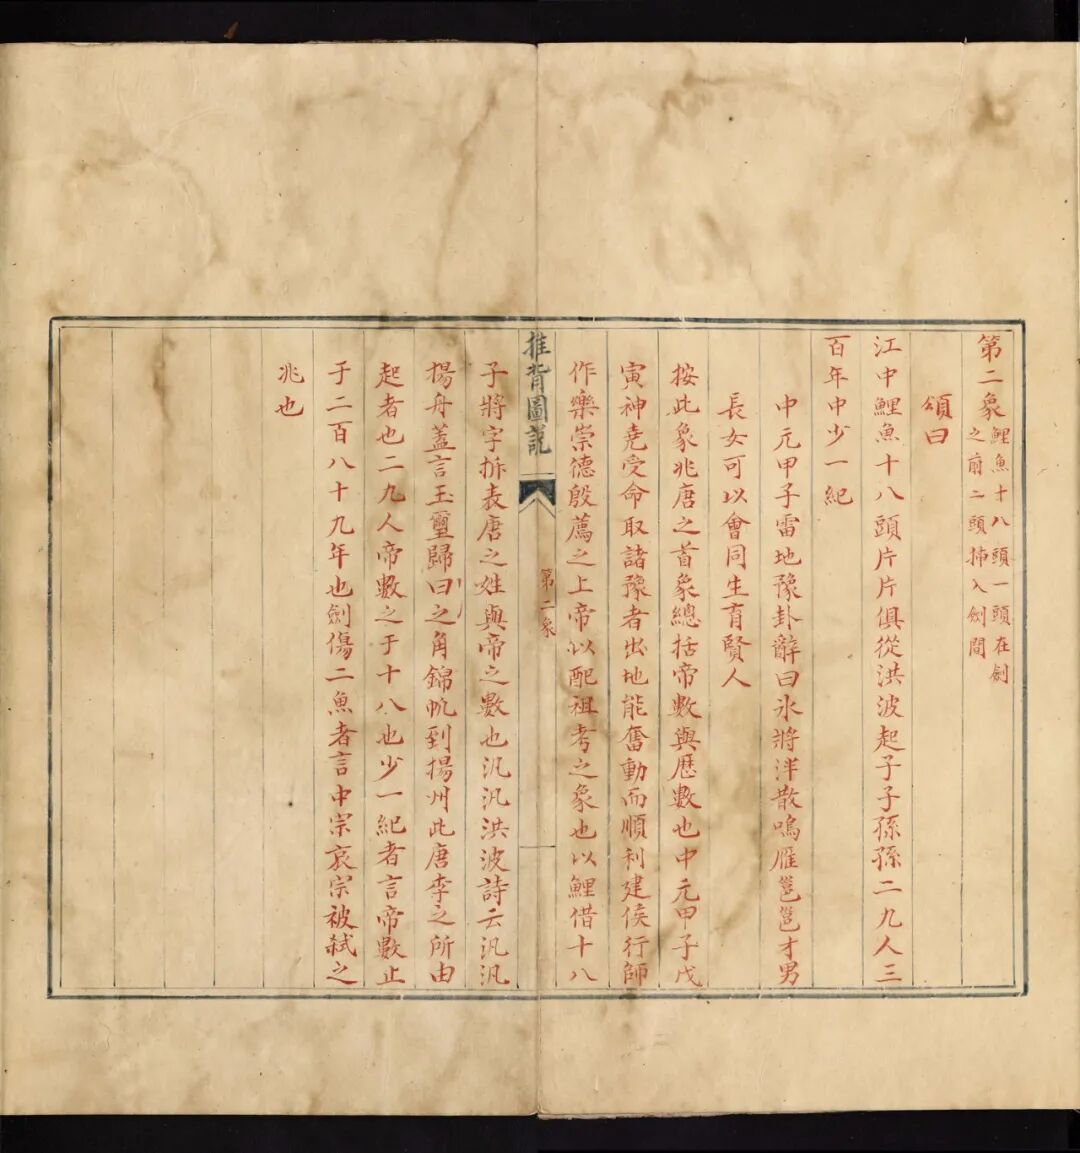 第二象鯉魚十八頭一頭在劍
之前二頭揷入劍間
頌曰
江中鯉魚十八頭片片俱從洪波起子子孫孫二九人三
百年中少一紀
中元甲子雷地豫卦辭曰氷將泮散嗚雁邕邕才男
長女可以會同生育賢人
按此象兆唐之首象總括帝數與歷數也中元甲子戊
寅神堯受命取諸豫者出地能奮動而順利建侯行師
作樂崇德殷薦之上帝以配祖考之象也以鯉借十八
推背圖說
第二象
子將字拆表唐之姓與帝之數也汎汎洪波詩云汎汎
揚舟蓋言玉璽歸曰之角錦帆到揚州此唐李之所由
起者也二九人帝數之于十八也少一紀者言帝數止
于二百八十九年也劍傷二魚者言中宗哀宗被弑之
兆也